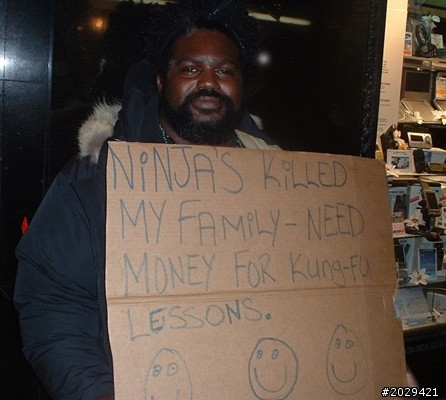 NiNJA'S KiLLED
MY FAMiLY - NEED
MONEY FOR Kung-Fu
LESSONS.
#2029421